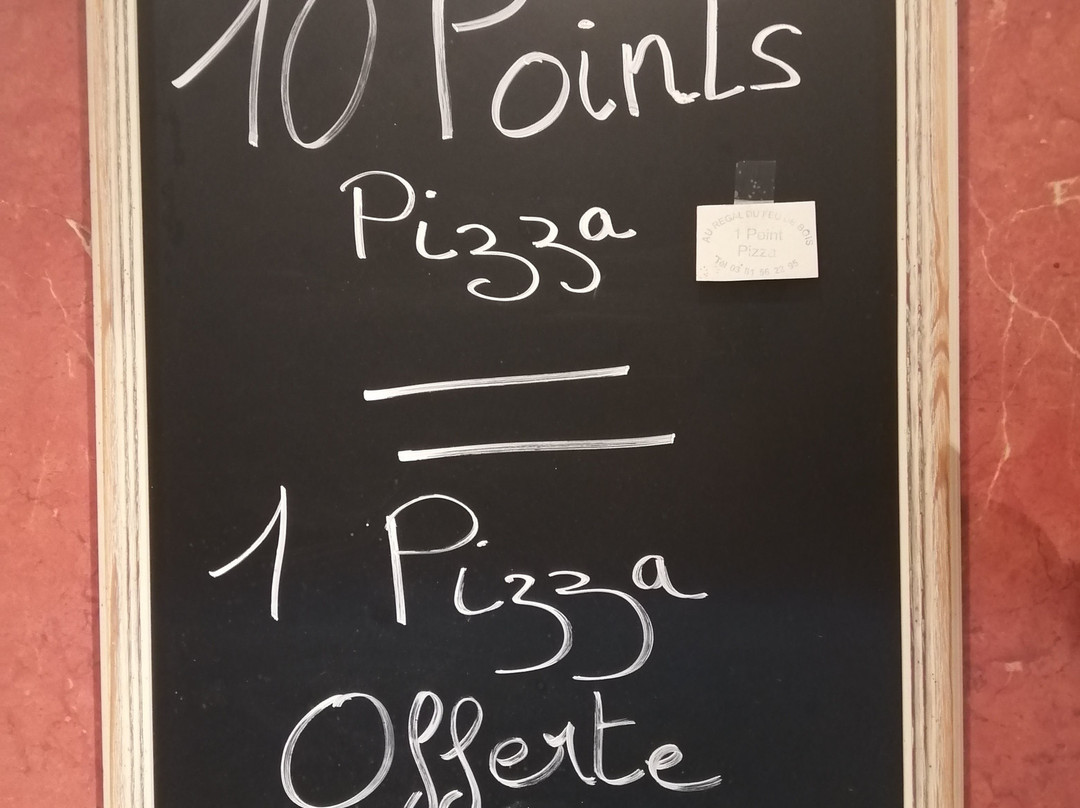 10 Points
Pizza
AU REGAL DU FEU DE BOIS
1 Point
Pizza
=
1 Pizza
Offerte